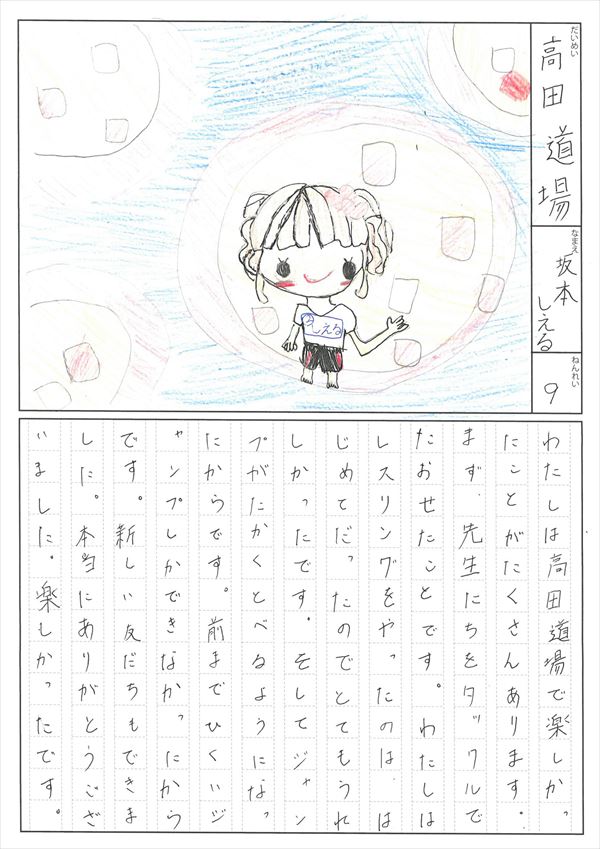 だいめい
高田道場
なまえ
坂本
しえる
ねんれい
9
しえる
わたしは高田道場で楽しかっ
たことがたくさんあります。
まず、先生たちをタックルで
たおせたことです。わたしは
レスリングをやったのは、は
じめてだったのでとてもうれ
しかったです。そしてジャン
プがたかくとべるようになっ
たからです。前までひくいジ
ャンプしかできなかったから
です。新しい友だちもできま
した。本当にありがとうござ
いました。楽しかったです。